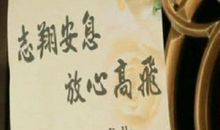 志翔安息
放心高飛